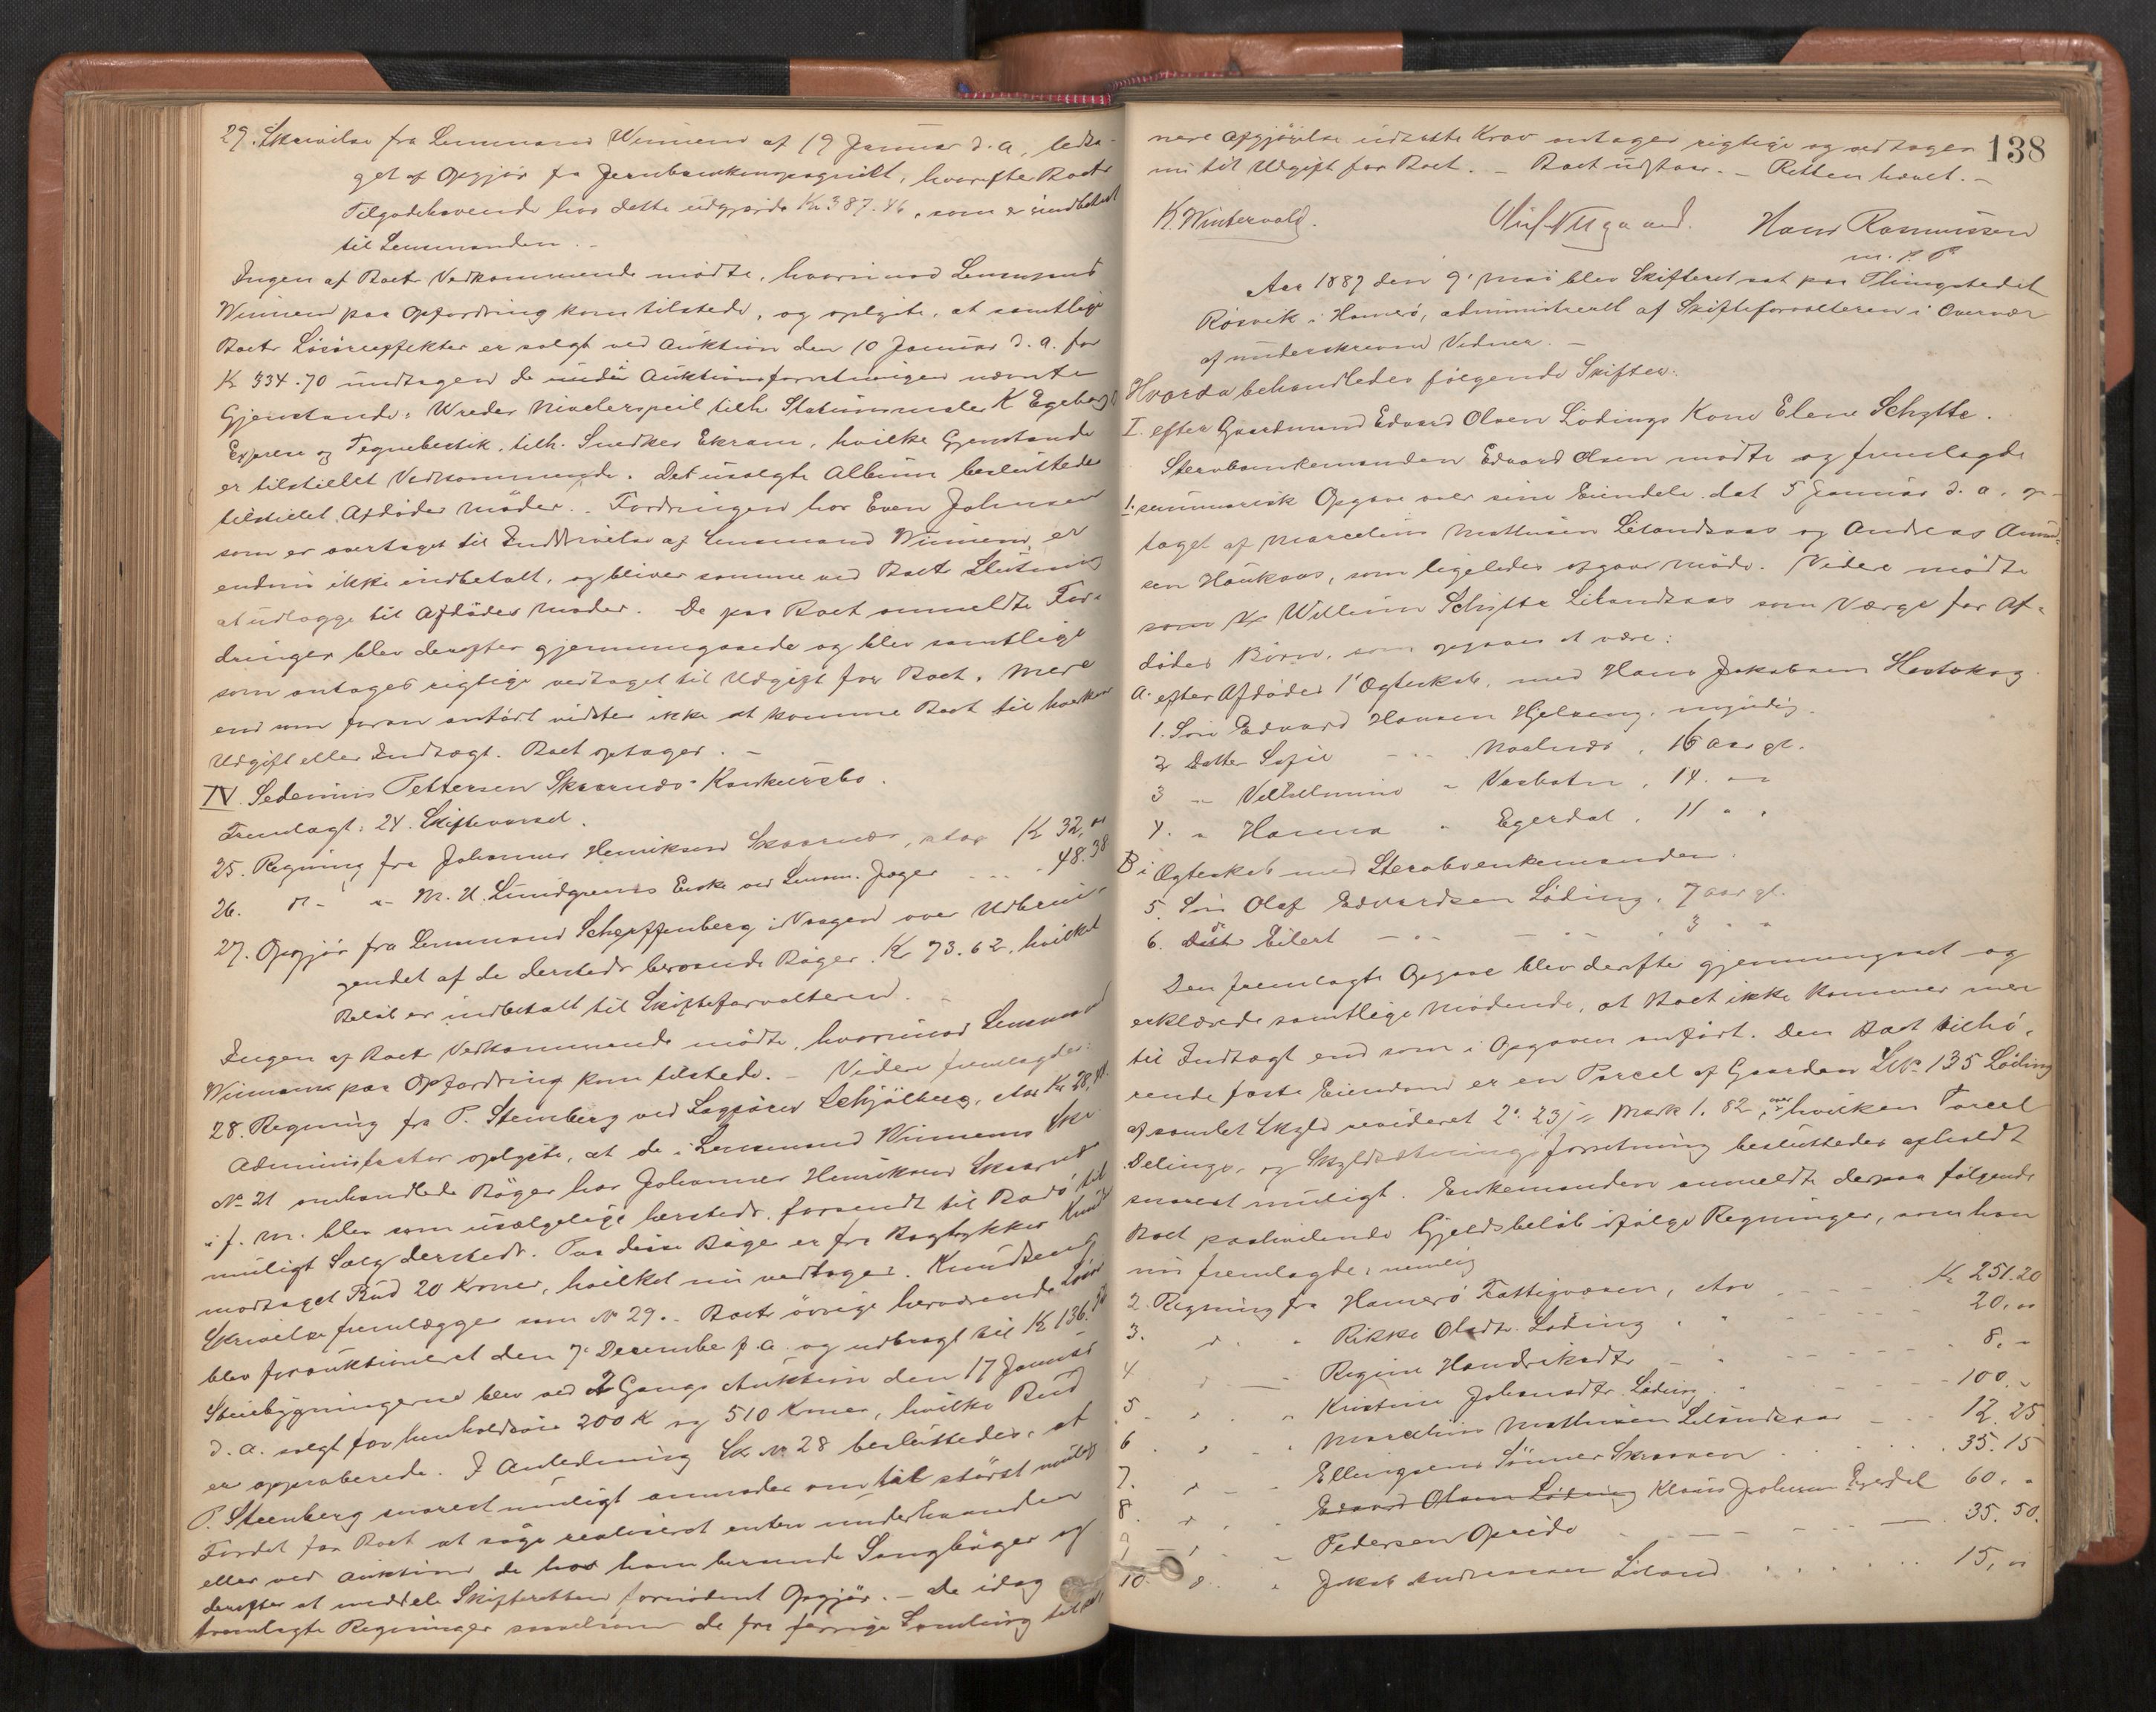 29. Skrivelse fra Lensmand Winnem af 19 Januar d. a. ledsa-
get af Opgjør fra Jernbankompagniet, hvorefter Boets
Tilgodehavende hos dette udgjorde Kr 387.46, som er indbetalt
til Lensmanden. -
Ingen af Boets Vedkommende mødte, hvorimod Lensmand
Winnem paa Opfordring kom tilstede, og oplyste, at samtlige
Boets Løsøreeffekter er solgt ved Auktion den 10 Januar d. a. for
Kr 334.70 undtagen de under Auktionsforretningen nævnte
Gjenstande: Wredes Nivelerspeil tilh. Stationsmester K Egeberg
og Tegnebestik, tilh. Snedker Ekram, hvilke Gjenstande
er tilstillet Vedkommende. Det usolgte Album besluttedes
tilstillet Afdødes Moder. - Fordringen hos Even Johnsen
som er overtaget til Inddrivelse af Lensmand Winnem, er
endnu ikke indbetalt, og bliver samme ved Boets Slutning
at udlægge til Afdødes Moder. De paa Boet anmeldte For-
dringer blev derefter gjennemgaaede og blev samtlige
som antages rigtige vedtaget til Udgift for Boet. Mere
end som foran anført vidstes ikke at komme Boet til hverken
Udgift eller Indtægt. Boet optages. -
IV. Sedenius Pettersen Skaarnæs Konkursbo.
Fremlagt: 24. Skiftevarsel.
25. Regning fra Johannes Henriksen Skaarnæs, stor Kr 32,00
26. " - " - M. U. Lundgrens Enke ved Lensm. Jager - - - 48.38
27. Opgjør fra Lensmand Scherffenberg i Vaagen over Udbrin-
gendet af de dersteds beroende Bøger. Kr 73.62, hvilket
Beløb er indbetalt til Skifteforvalteren. -
Ingen af Boets Vedkommende mødte, hvorimod Lensmand
Winnem paa Opfordring kom tilstede. - Videre fremlagdes:
28. Regning fra P. Steenberg ved Sagfører Schjølberg, stor Kr 28,40.
Administrator oplyste, at de i Lensmand Winnems Skr
No 21 omhandlede Bøger hos Johannes Henriksen Skaarnæs
i f. M. blev som usælgelige hersteds, forsendt til Bodø til
muligt Salg dersteds. Paa disse Bøger er fra Bogtrykker Knudt
modtaget Bud 20 Kroner, hvilket nu vedtages. Knudtzens
Skrivelse fremlægges som No 29. - Boets øvrige herværende Løsøre
blev forauktioneret den 7de December f. a. og udbragt til Kr 136.
Steenbygningerne blev ved 2 Gangs Auktion den 17 Januar
d. a. solgt for henholdsvis 200 Kr og 510 Kroner, hvilke Bud
er approberede. I Anledning Skr No 28 besluttedes, at
P. Steenberg snarest muligt anmodes om til størst muligt
Fordel for Boet at søge realiseret enten underhaanden
eller ved Auktion de hos ham beroende Sangbøger og
derefter at meddele Skifteretten fornødent Opgjør. - De idag
fremlagte Regninger saavelsom de fra forrige Samling til
138
nere Afgjørelse udsatte Krav antages rigtige og vedtages
nu til Udgift for Boet. - Boet udstaar. - Retten hævet. -
K. Wintervold. Hans Rasmussen
m. p. P
Aar 1887 den 9' Mai blev Skifteret sat paa Thingstedet
Røsvik i Hamerø, administreret af Skifteforvalteren i Overvær
af underskrevne Vidner. -
Hvorda behandledes følgende Skifter:
I. efter Gaardmand Edvard Olsen Lødings Kone Elene Schytte.
Stervboenkemanden Edvard Olsen mødte og fremlagde
1. summarisk Opgave over sine Eiendele dat 5 Januar d. a. op-
taget af Marcelius Mathisen Lilandsaas og Andreas Amund-
sen Haukaas, som ligeledes afgaar Møde. Videre mødte
som Kr Willum Schytte Lilandsaas som Værge for Af-
dødes Børn, som opgaves at være:
A. efter Afdødes 1ste Ægteskab, med Hans Jakobsen
1. Søn Edvard Hansen Hjelseng, myndig.
2 Datter Sofie - - . 16 Aar gl.
3 " Vilhelmine " , 14. - "
4. " Hanna " Egerdal. 11 " "
B i Ægteskab med Stervboenkemanden:
5. Søn Olaf Edvardsen Løding, 7 aar gl.
6. Do Eilert - " - - " - 3 " "
Den fremlagte Opgave blev derefter gjennemgaaet og
erklærede samtlige Mødende, at Boet ikke kommer mer
til Indtægt end som i Opgaven anført. Den Boet tilhø-
rende faste Eiendom er en Parcel af Gaarden LNo 135 Løding
af samlet Skyld revideret Mark 1. 82, over hvilken Parcel
Delings- og Skyldsætningsforretning besluttedes afholdt
snarest muligt. Enkemanden anmeldte derpaa følgende
Boet paahvilende Gjeldsbeløb ifølge Regninger, som han
nu fremlagde, nemlig
2. Regning fra Hamerø Fattigvæsen, stor - - - Kr 251.20
3. " . " Rikke Olsdtr. Løding . " - - - 20.00
4 " - Regine Hendriksdtr - " - - - 8. "
5 " . " Kristine Johansdtr. Løding. " - - - 100. "
6 . " - " Marcelius Mathisen Lilandsaas - - - 12. 25
7. " - " Ellingsens Sønner Skraaven . . . 35.15
8. " . " Edvard Olsen Løding Klaus Johnsen Egerdal 60. "
9 " - " Pedersen Opeide - - - 35. 50.
10. " . " Jakob Andreassen Liland . . . 15, 00